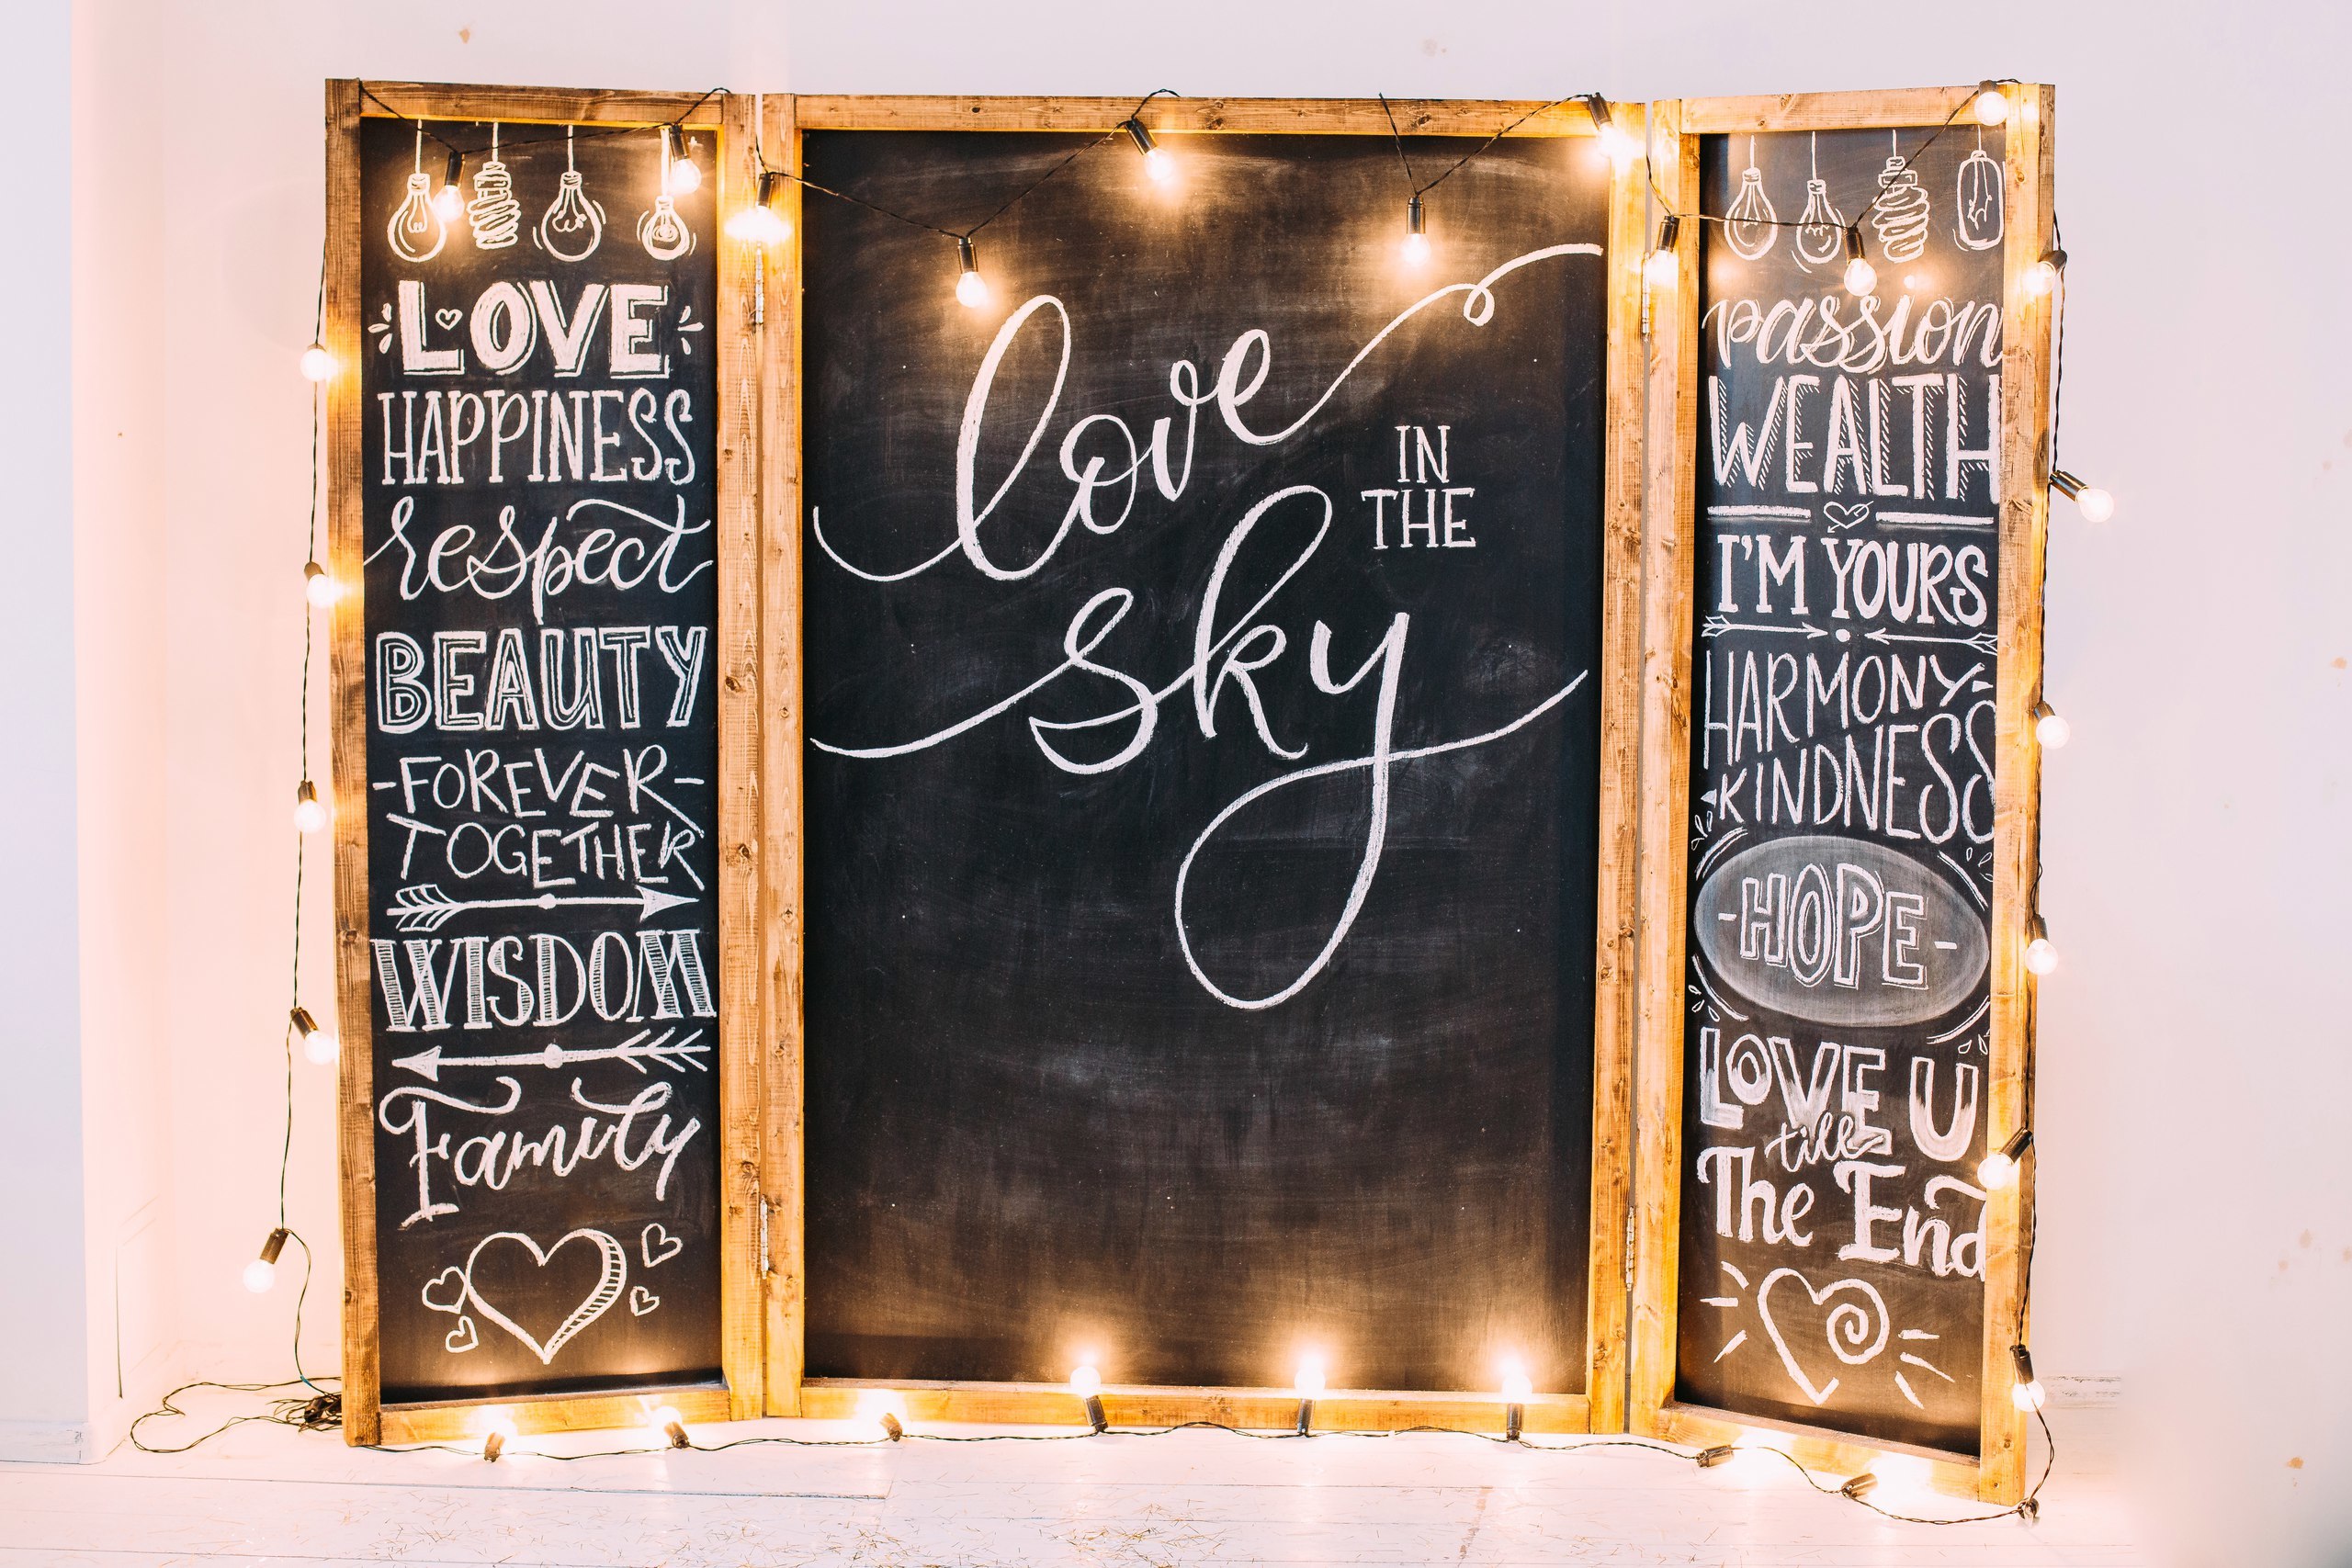 LOVE
HAPPINESS
respect
BEAUTY
-FOREVER-
TOGETHER
WISDOM
Family
love
IN
THE
sky
passion
WEALTH
I'M YOURS
HARMONY
KINDNESS
-HOPE-
LOVE U
till
The End